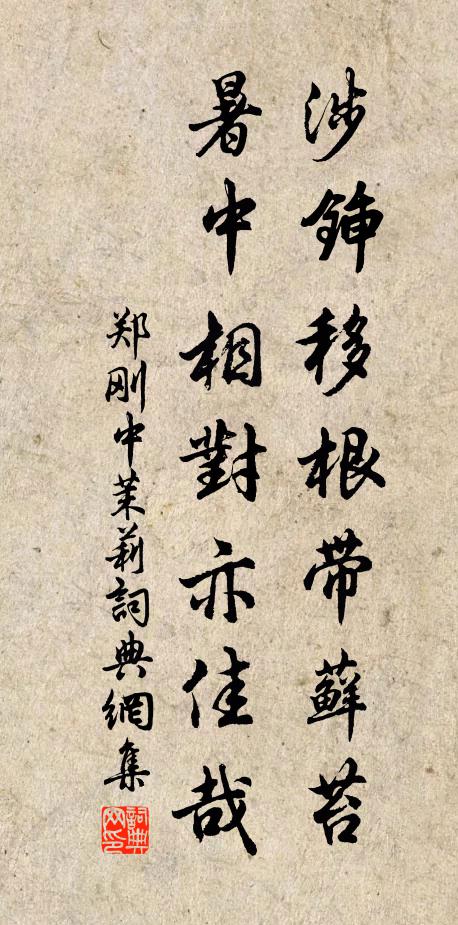 涉鍤移根带蘚苔
暑中相對亦佳哉
郑刚中茉莉詞典網集
詞典网印